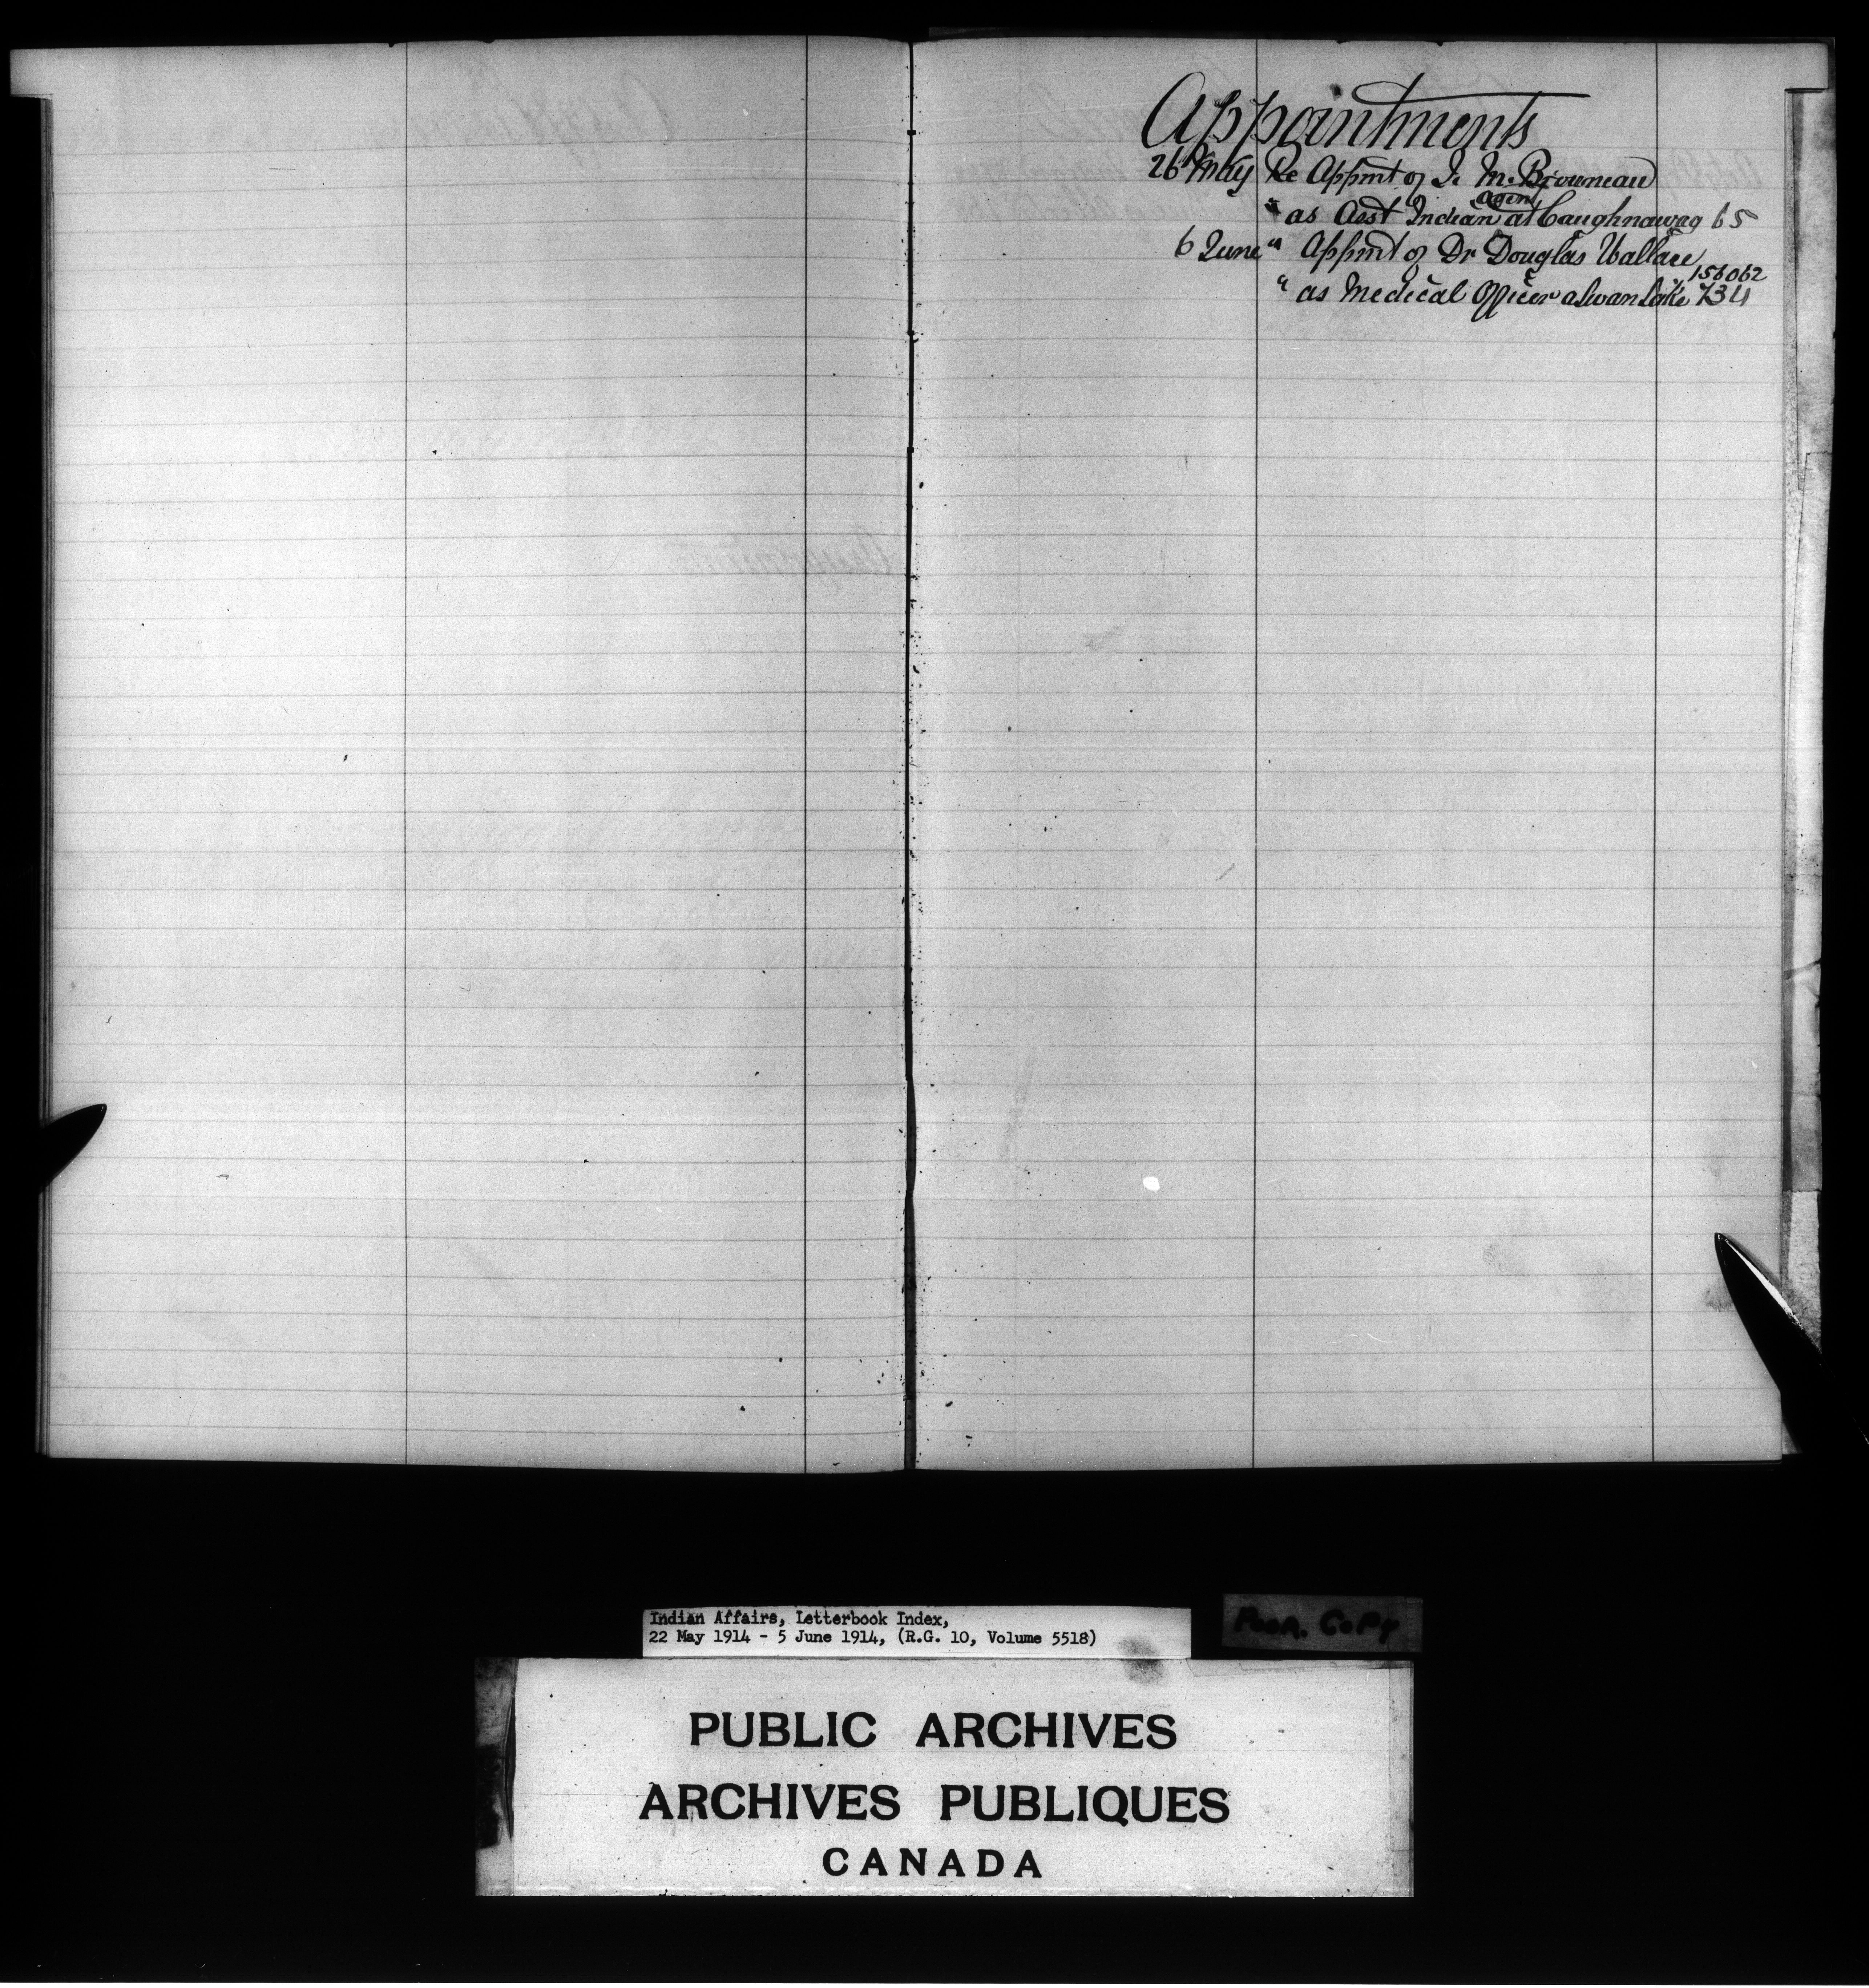 Appointments
26 May Re Appmt of J. M. Brouneau
agent
" as Asst Indian at Caughnawag 65
6 June " Appmt of Dr Douglas Wallace
156062
" as Medical Officer a Swan Lake 734
Indian Affairs, Letterbook Index,
22 May 1914 - 5 June 1914, (R.G. 10, Volume 5518)
Poor. Copy
PUBLIC ARCHIVES
ARCHIVES PUBLIQUES
CANADA